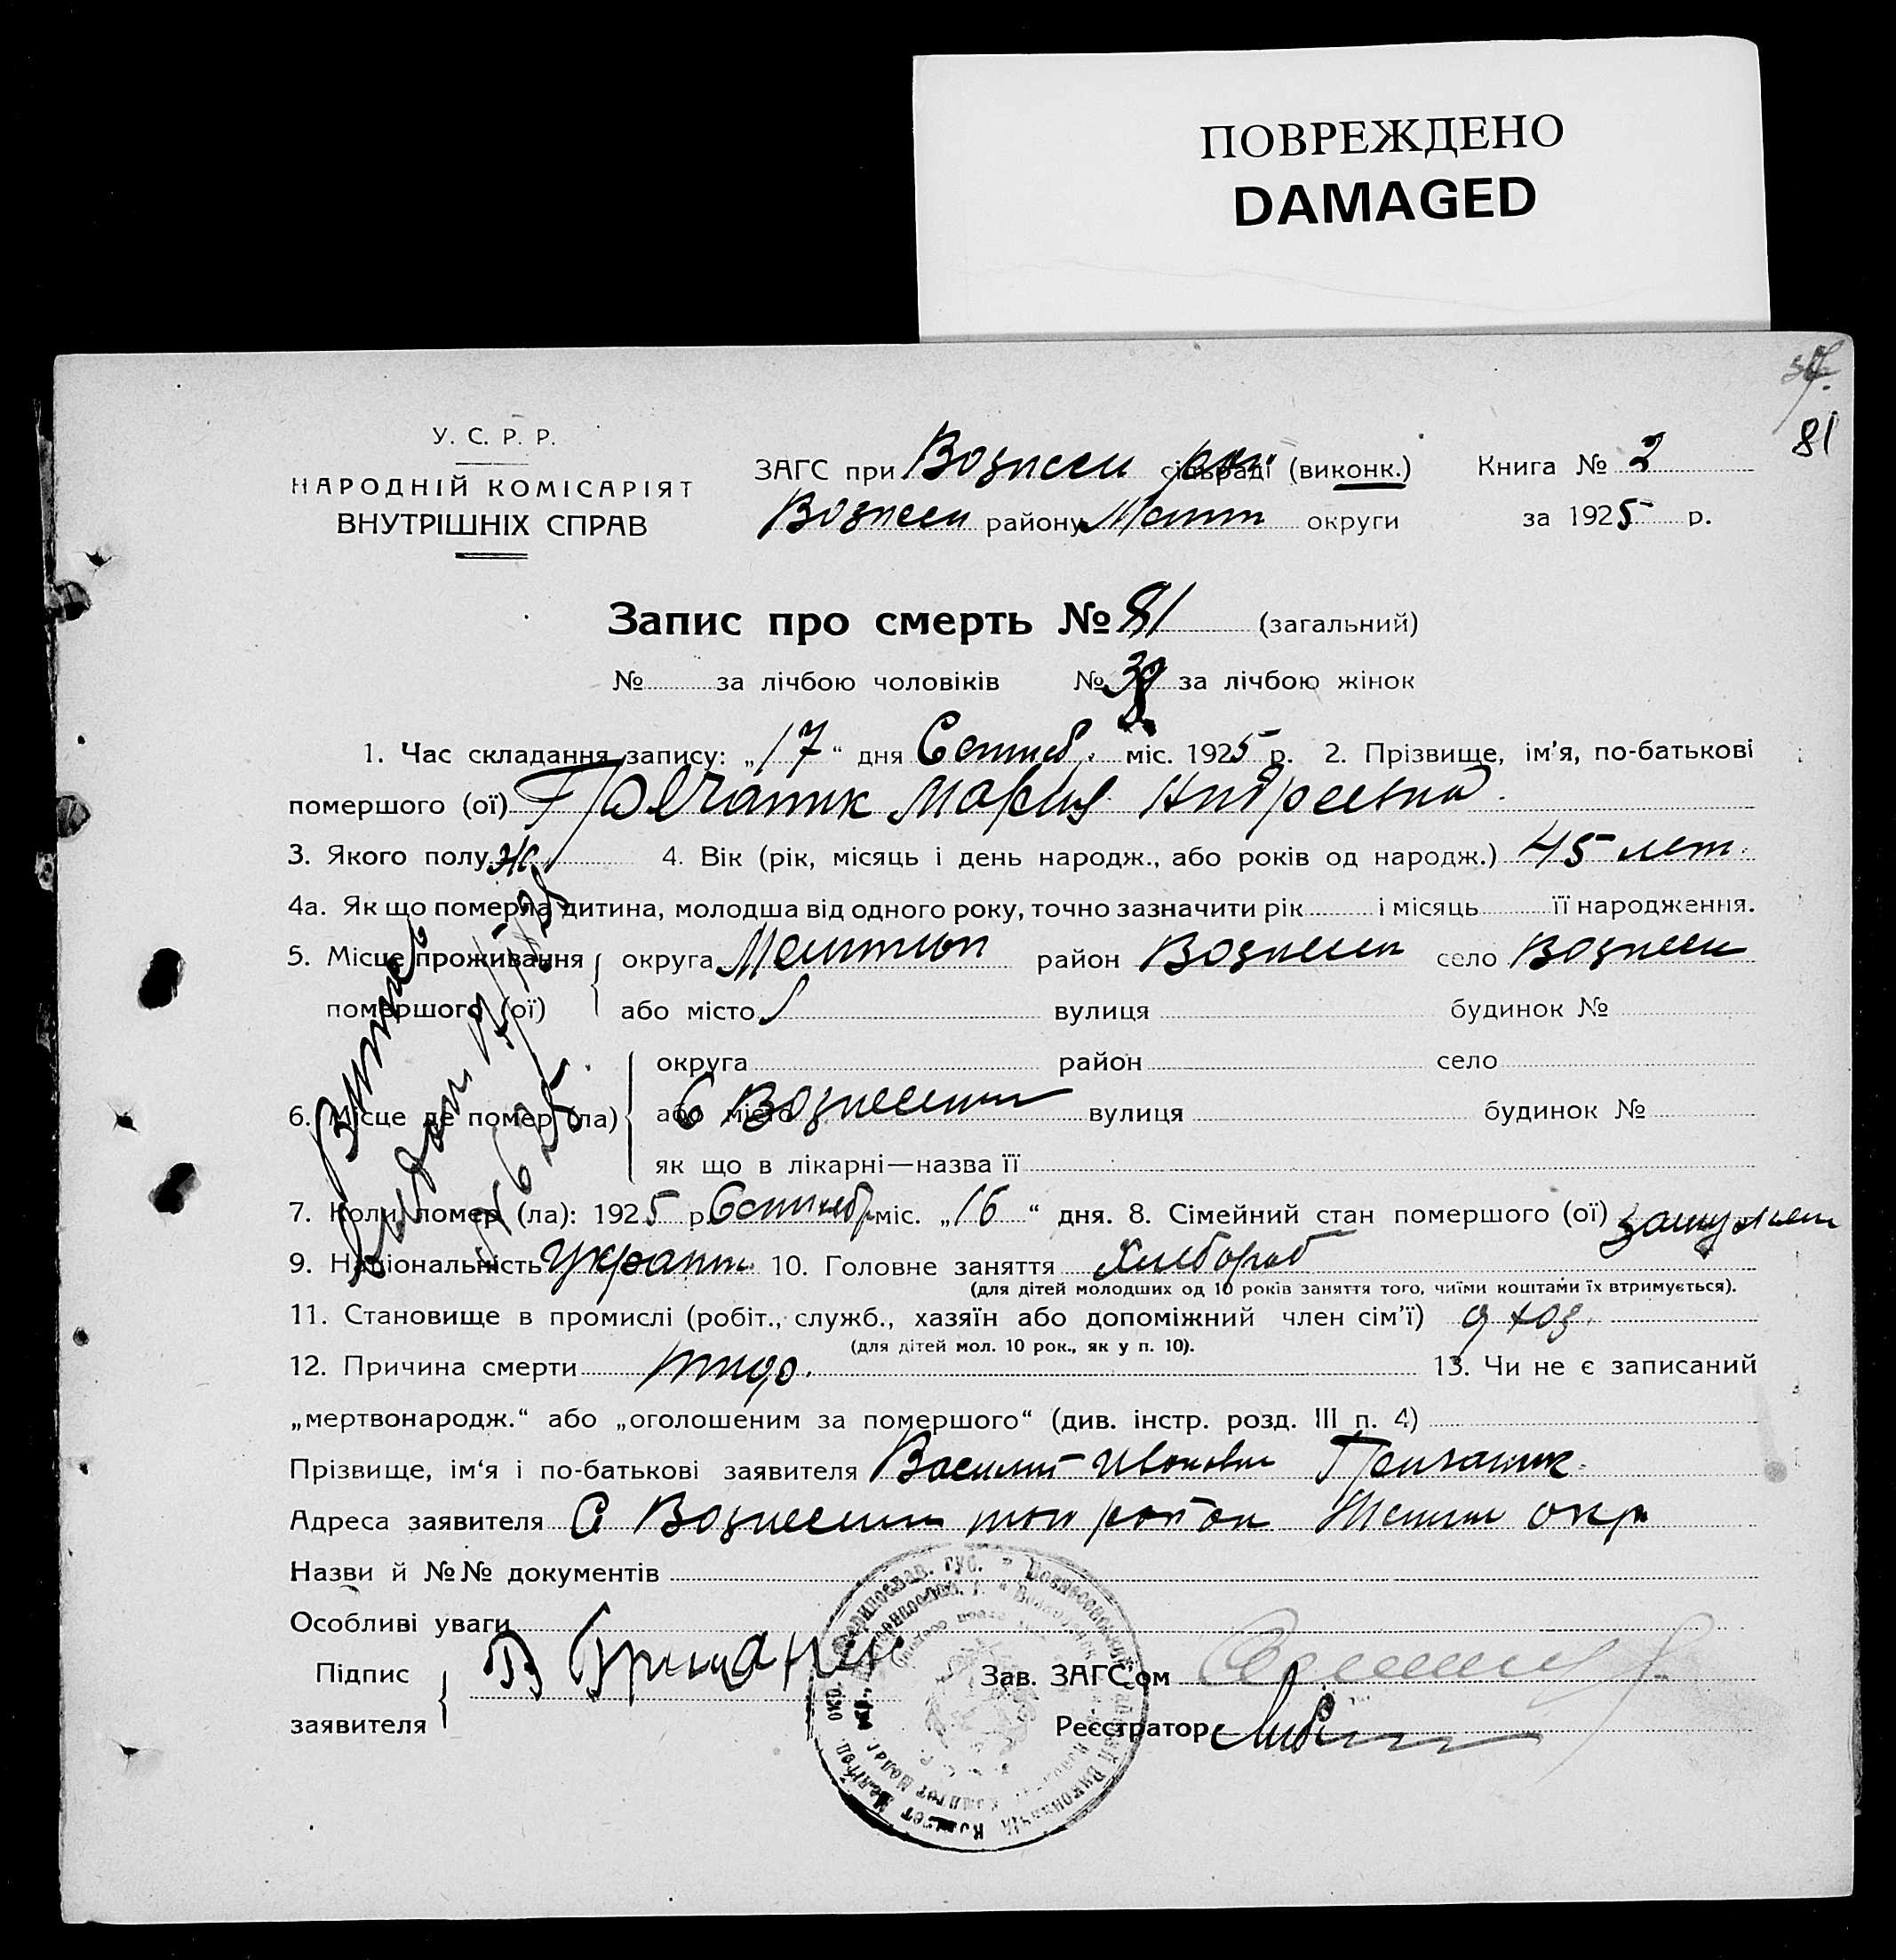 ПОВРЕЖДЕНО
DAMAGED
81
У. С. Р. Р.
НАРОДНІЙ КОМІСАРІЯТ
ВНУТРІШНІХ СПРАВ
ЗАГС при Вознесен рай сільраді (виконк.)
Вознесен району округи
Книга № 2
за 1925 р.
Запис про смерть № 81 (загальний)
№ за лічбою чоловіків № 39 за лічбою жінок
1. Час складання запису: „17“ дня Сентяб. міс. 1925 р. 2. Прізвище, ім'я, по-батькові
помершого (ої) Мария Андреевна
3. Якого полу ж. 4. Вік (рік, місяць і день народж., або років од народж.) 45 лет.
4а. Як що померла дитина, молодша від одного року, точно зазначити рік і місяць її народження.
5. Місце проживання помершого (ої) округа район Вознесен село Вознесен
або місто вулиця будинок №
6. Місце де помер (ла) округа район село
або місто С Вознесенки вулиця будинок №
як що в лікарні—назва її
7. Коли помер (ла): 1925 р. Сентябр міс. „16“ дня. 8. Сімейний стан помершого (ої) замужем
9. Національність Украин. 10. Головне заняття Хлебороб
(для дітей молодших од 10 років заняття того, чиїми коштами їх втримується).
11. Становище в промислі (робіт., служб., хазяїн або допоміжний член сім'ї)
(для дітей мол. 10 рок., як у п. 10).
12. Причина смерти 13. Чи не є записаний
„мертвонародж.“ або „оголошеним за помершого“ (див. інстр. розд. III п. 4)
Прізвище, ім'я і по-батькові заявителя Василий Иванович
Адреса заявителя С Вознесенки район окр
Назви й №№ документів
Особливі уваги
Підпис
заявителя
Зав. ЗАГС'ом
Реєстратор